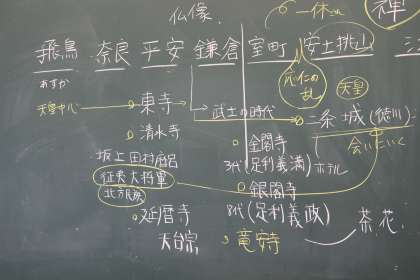 仏像
一休さん
禅
飛鳥 奈良 平安 鎌倉 室町 安土桃山 江
あすか
応仁の乱
天皇
天皇中心
東寺
武士の時代
二条城(徳川)
清水寺
会いにいく
金閣寺
坂上田村麻呂
3代(足利義満)ホテル
征夷大将軍
北方民族
銀閣寺
延暦寺
8代(足利義政)
茶、花
天台宗
竜安寺